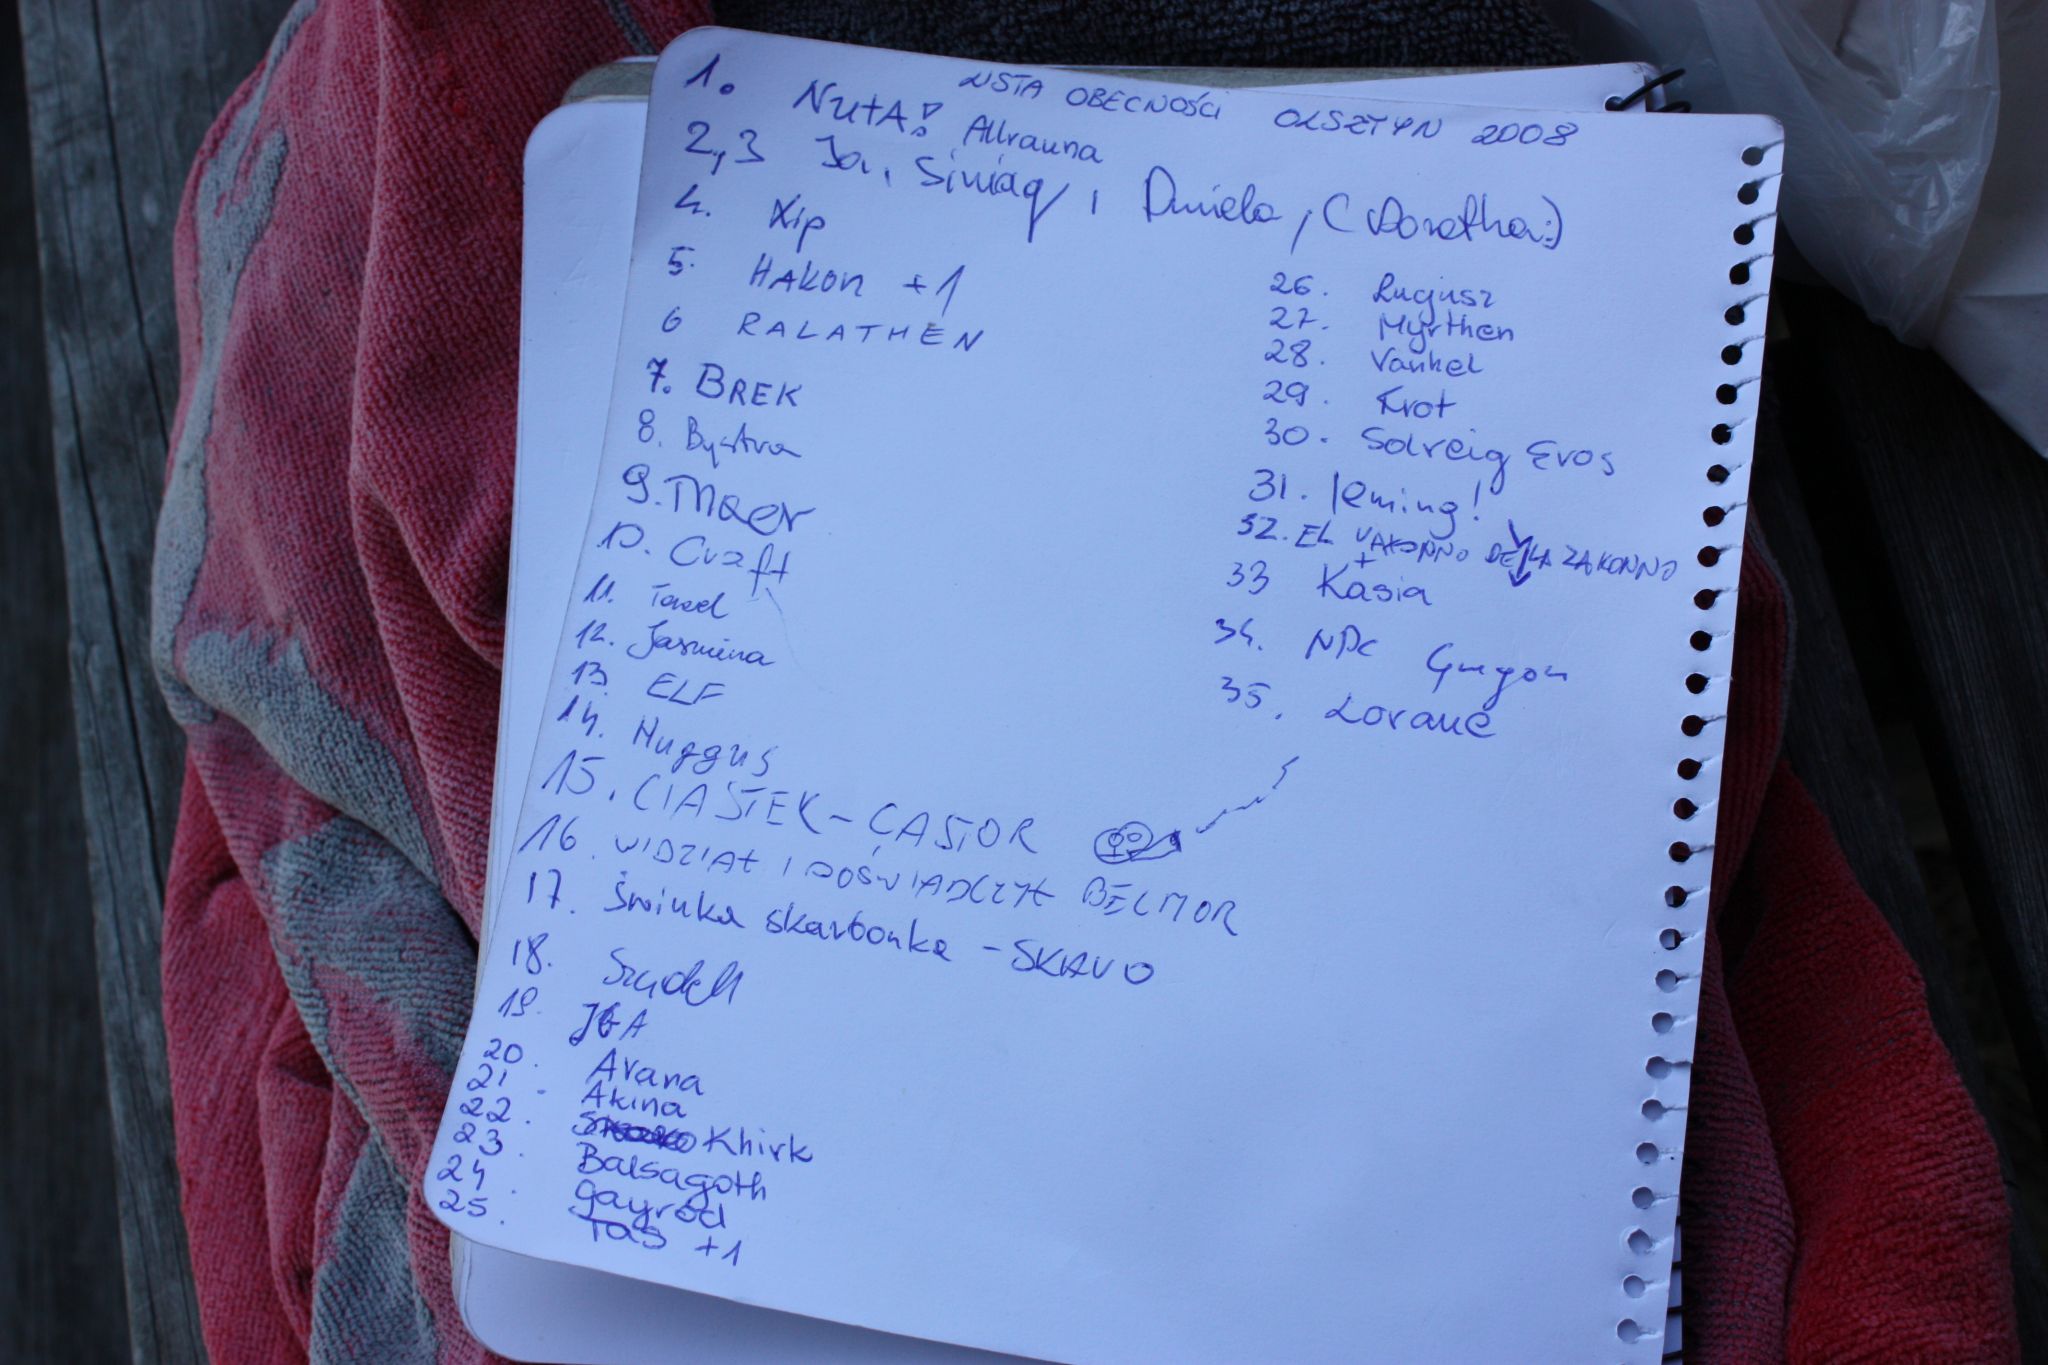 LISTA OBECNOŚCI OLSZTYN 2008
1. NUTA! Allrauna
2,3 Ja, Siniaq, Daniela, (Dorotha:)
4. Xip
5. HAKON +1
6 RALATHEN
7. BREK
8. Bystra
9. Maer
10. Craft
11.
12. Jasmina
13. ELF
14. Huggus
15. CIASTEK - CASTOR
16. WIDZIAŁ I DOŚWIADCZYŁ BELMOR
17. Świnka skarbonka - SKAVO
18.
19. JGA
20. Arana
21. Akina
22. Khirk
23. Balsagoth
24. Gayrod
25. Tas +1
26. Rugusz
27. Myrthen
28. Vankel
29. Krot
30. Solreig Eros
31. leming!
32. EL VAKONNO DE LA ZAKONNO
+
33 Kasia
34. NPC
35. Lorane